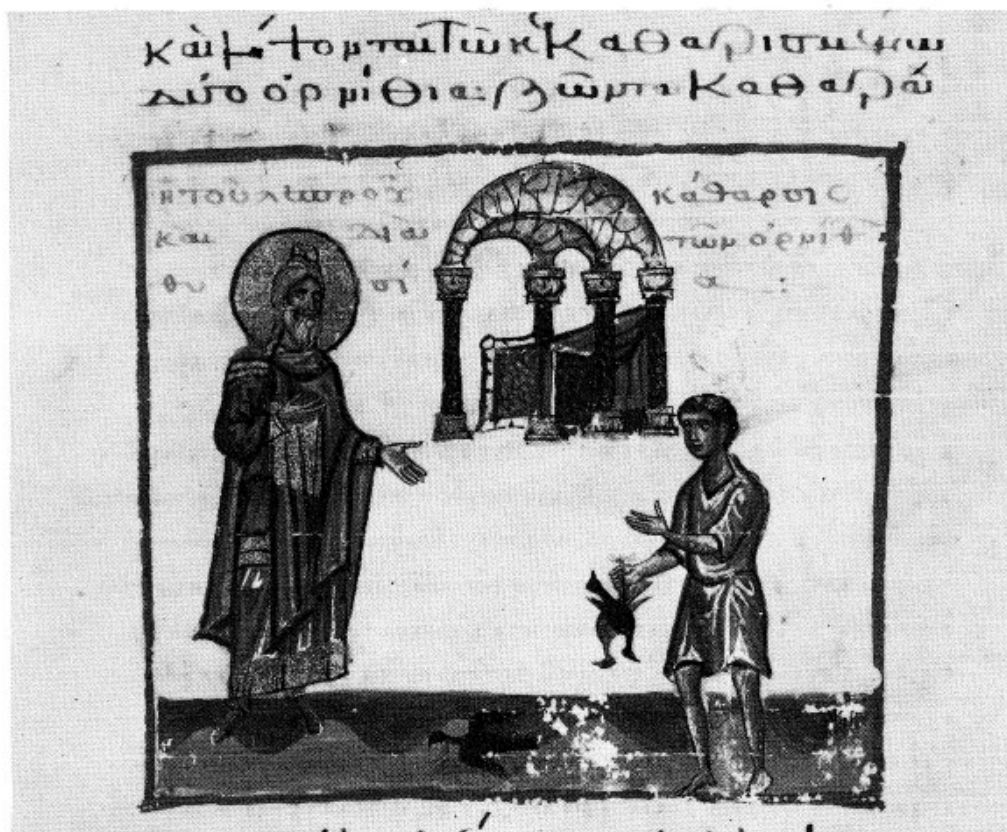 καὶ λήψονται τῶ κεκαθαρισμένω
δύο ὀρνίθια ζῶντα καθαρά
ἡ τοῦ λεπροῦ κάθαρσις
καὶ διὰ τῶν ὀρνίθ
θυσία :